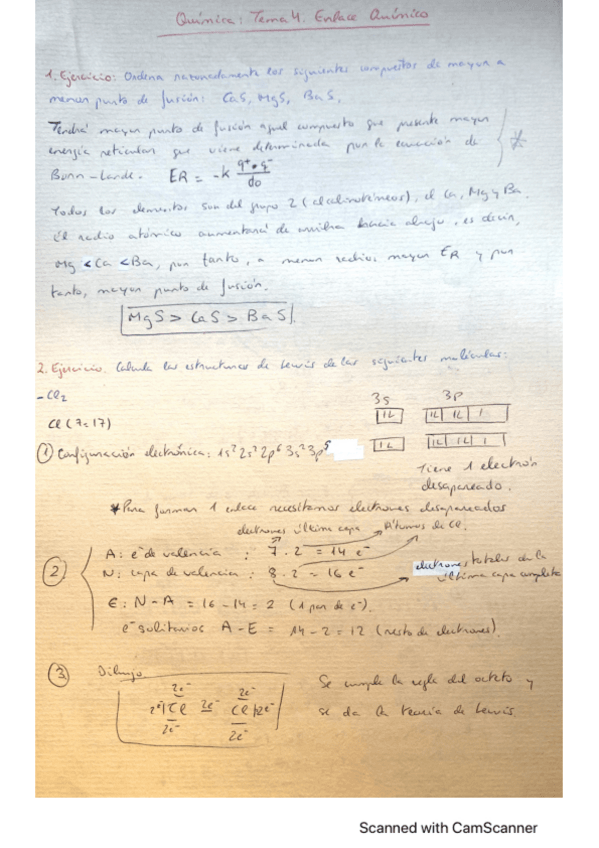 Química: Tema 4. Enlace Químico
1. Ejercicio: Ordena razonadamente los siguientes compuestos de mayor a
menor punto de fusión: CaS, MgS, BaS.
Tendrá mayor punto de fusión aquel compuesto que presente mayor
energía reticular que viene determinada por la ecuación de
Born-Lande. ER = -k q⁺·q⁻/do
Todos los elementos son del grupo 2 (alcalinotérreos), el Ca, Mg y Ba
el radio atómico aumentará de arriba hacia abajo, es decir,
Mg < Ca < Ba, por tanto, a menor radio, mayor ER y por
tanto, mayor punto de fusión.
MgS > CaS > BaS.
2. Ejercicio. Calcula las estructuras de Lewis de las siguientes moléculas:
- Cl₂
3s 3p
Cl (Z=17)
① Configuración electrónica: 1s² 2s² 2p⁶ 3s² 3p⁵
Tiene 1 electrón
desapareado.
* Para formar 1 enlace necesitamos electrones desapareados
electrones última capa Átomos de Cl.
② A: e⁻ de valencia : 7 · 2 = 14 e⁻
N: capa de valencia : 8 · 2 = 16 e⁻
electrones totales en la
última capa completa
E: N - A = 16 - 14 = 2 (1 par de e⁻).
e⁻ solitarios A - E = 14 - 2 = 12 (resto de electrones).
③ Dibujo
2e⁻ 2e⁻
2e⁻ Cl 2e⁻ Cl 2e⁻
2e⁻ 2e⁻
Se cumple la regla del octeto y
se da la teoría de Lewis.
Scanned with CamScanner